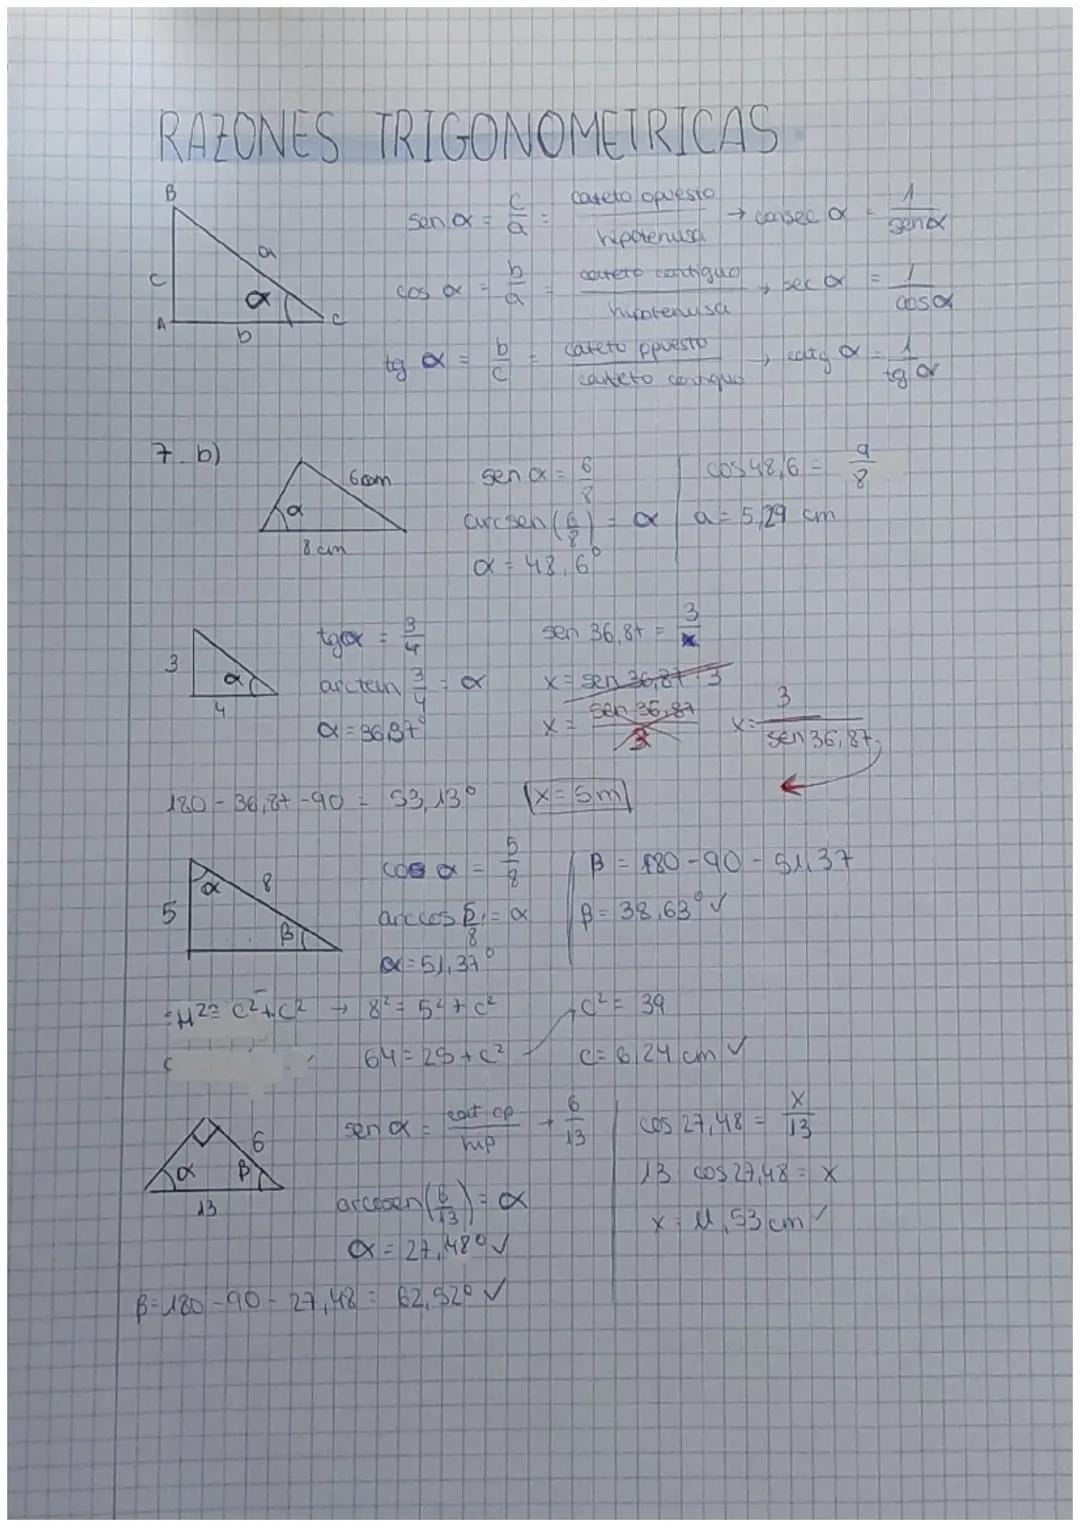 RAZONES TRIGONOMETRICAS
B
c
a
α
A
b
C
sen α = c/a = cateto opuesto / hipotenusa → consec α = 1/sen α
cos α = b/a = cateto contiguo / hipotenusa → sec α = 1/cos α
tg α = b/c = cateto opuesto / cateto contiguo → cotg α = 1/tg α
7. b)
6cm
α
8 cm
sen α = 6/8
arcsen (6/8) = α
α = 48,6°
cos 48,6 = a/8
a = 5,29 cm
3
α
4
tg α = 3/4
arctan 3/4 = α
α = 36,87°
sen 36,87 = 3/x
x = sen 36,87 · 3
x = sen 36,87 / 3
x = 3 / sen 36,87
180 - 36,87 - 90 = 53,13°
x = 5m
5
α
8
β
cos α = 5/8
arccos 5/8 = α
α = 51,37°
β = 180 - 90 - 51,37
β = 38,63° ✓
H² = c² + c² → 8² = 5² + c²
64 = 25 + c²
c² = 39
c = 6,24 cm ✓
6
α
β
13
sen α = cat op / hip → 6/13
arcosen (6/13) = α
α = 27,48° ✓
cos 27,48 = x/13
13 cos 27,48 = x
x = 11,53 cm ✓
β = 180 - 90 - 27,48 = 62,52° ✓